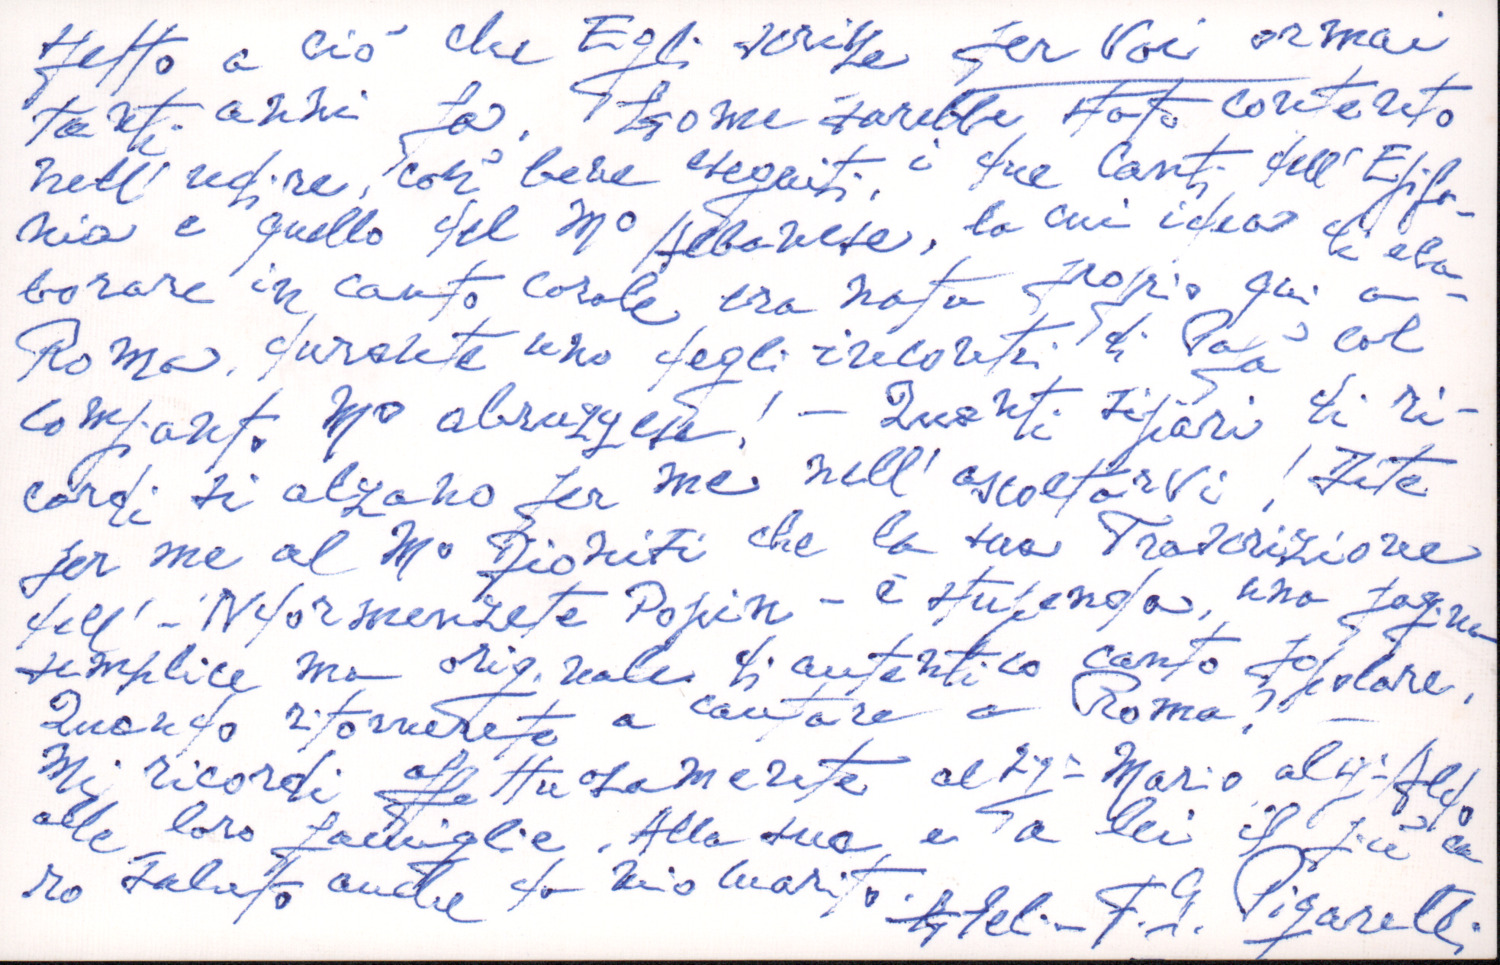 petto a ciò che Egli scrisse per Voi ormai
tanti anni fa. Come sarebbe stato contento
nell'udire, così bene eseguiti, i due canti dell'Epifa-
nia e quello del M° Albanese, la cui idea di ela-
borare in canto corale era nata proprio qui a
Roma, durante uno degli incontri di Papà col
compianto M° abruzzese! - Quanti sipari di ri-
cordi si alzano per me nell'ascoltarvi! Dite
per me al M° Dionisi che la sua Trascrizione
dell' - 'Ndormenzete Popin - è stupenda, una pagina
semplice ma originale di autentico canto popolare.
Quando ritornerete a cantare a Roma? -
Mi ricordi affettuosamente al sig- Mario, al sig- Aldo
alle loro famiglie. Alla sua e a lei il più ca
ro saluto anche da mio marito.
F. Pigarelli